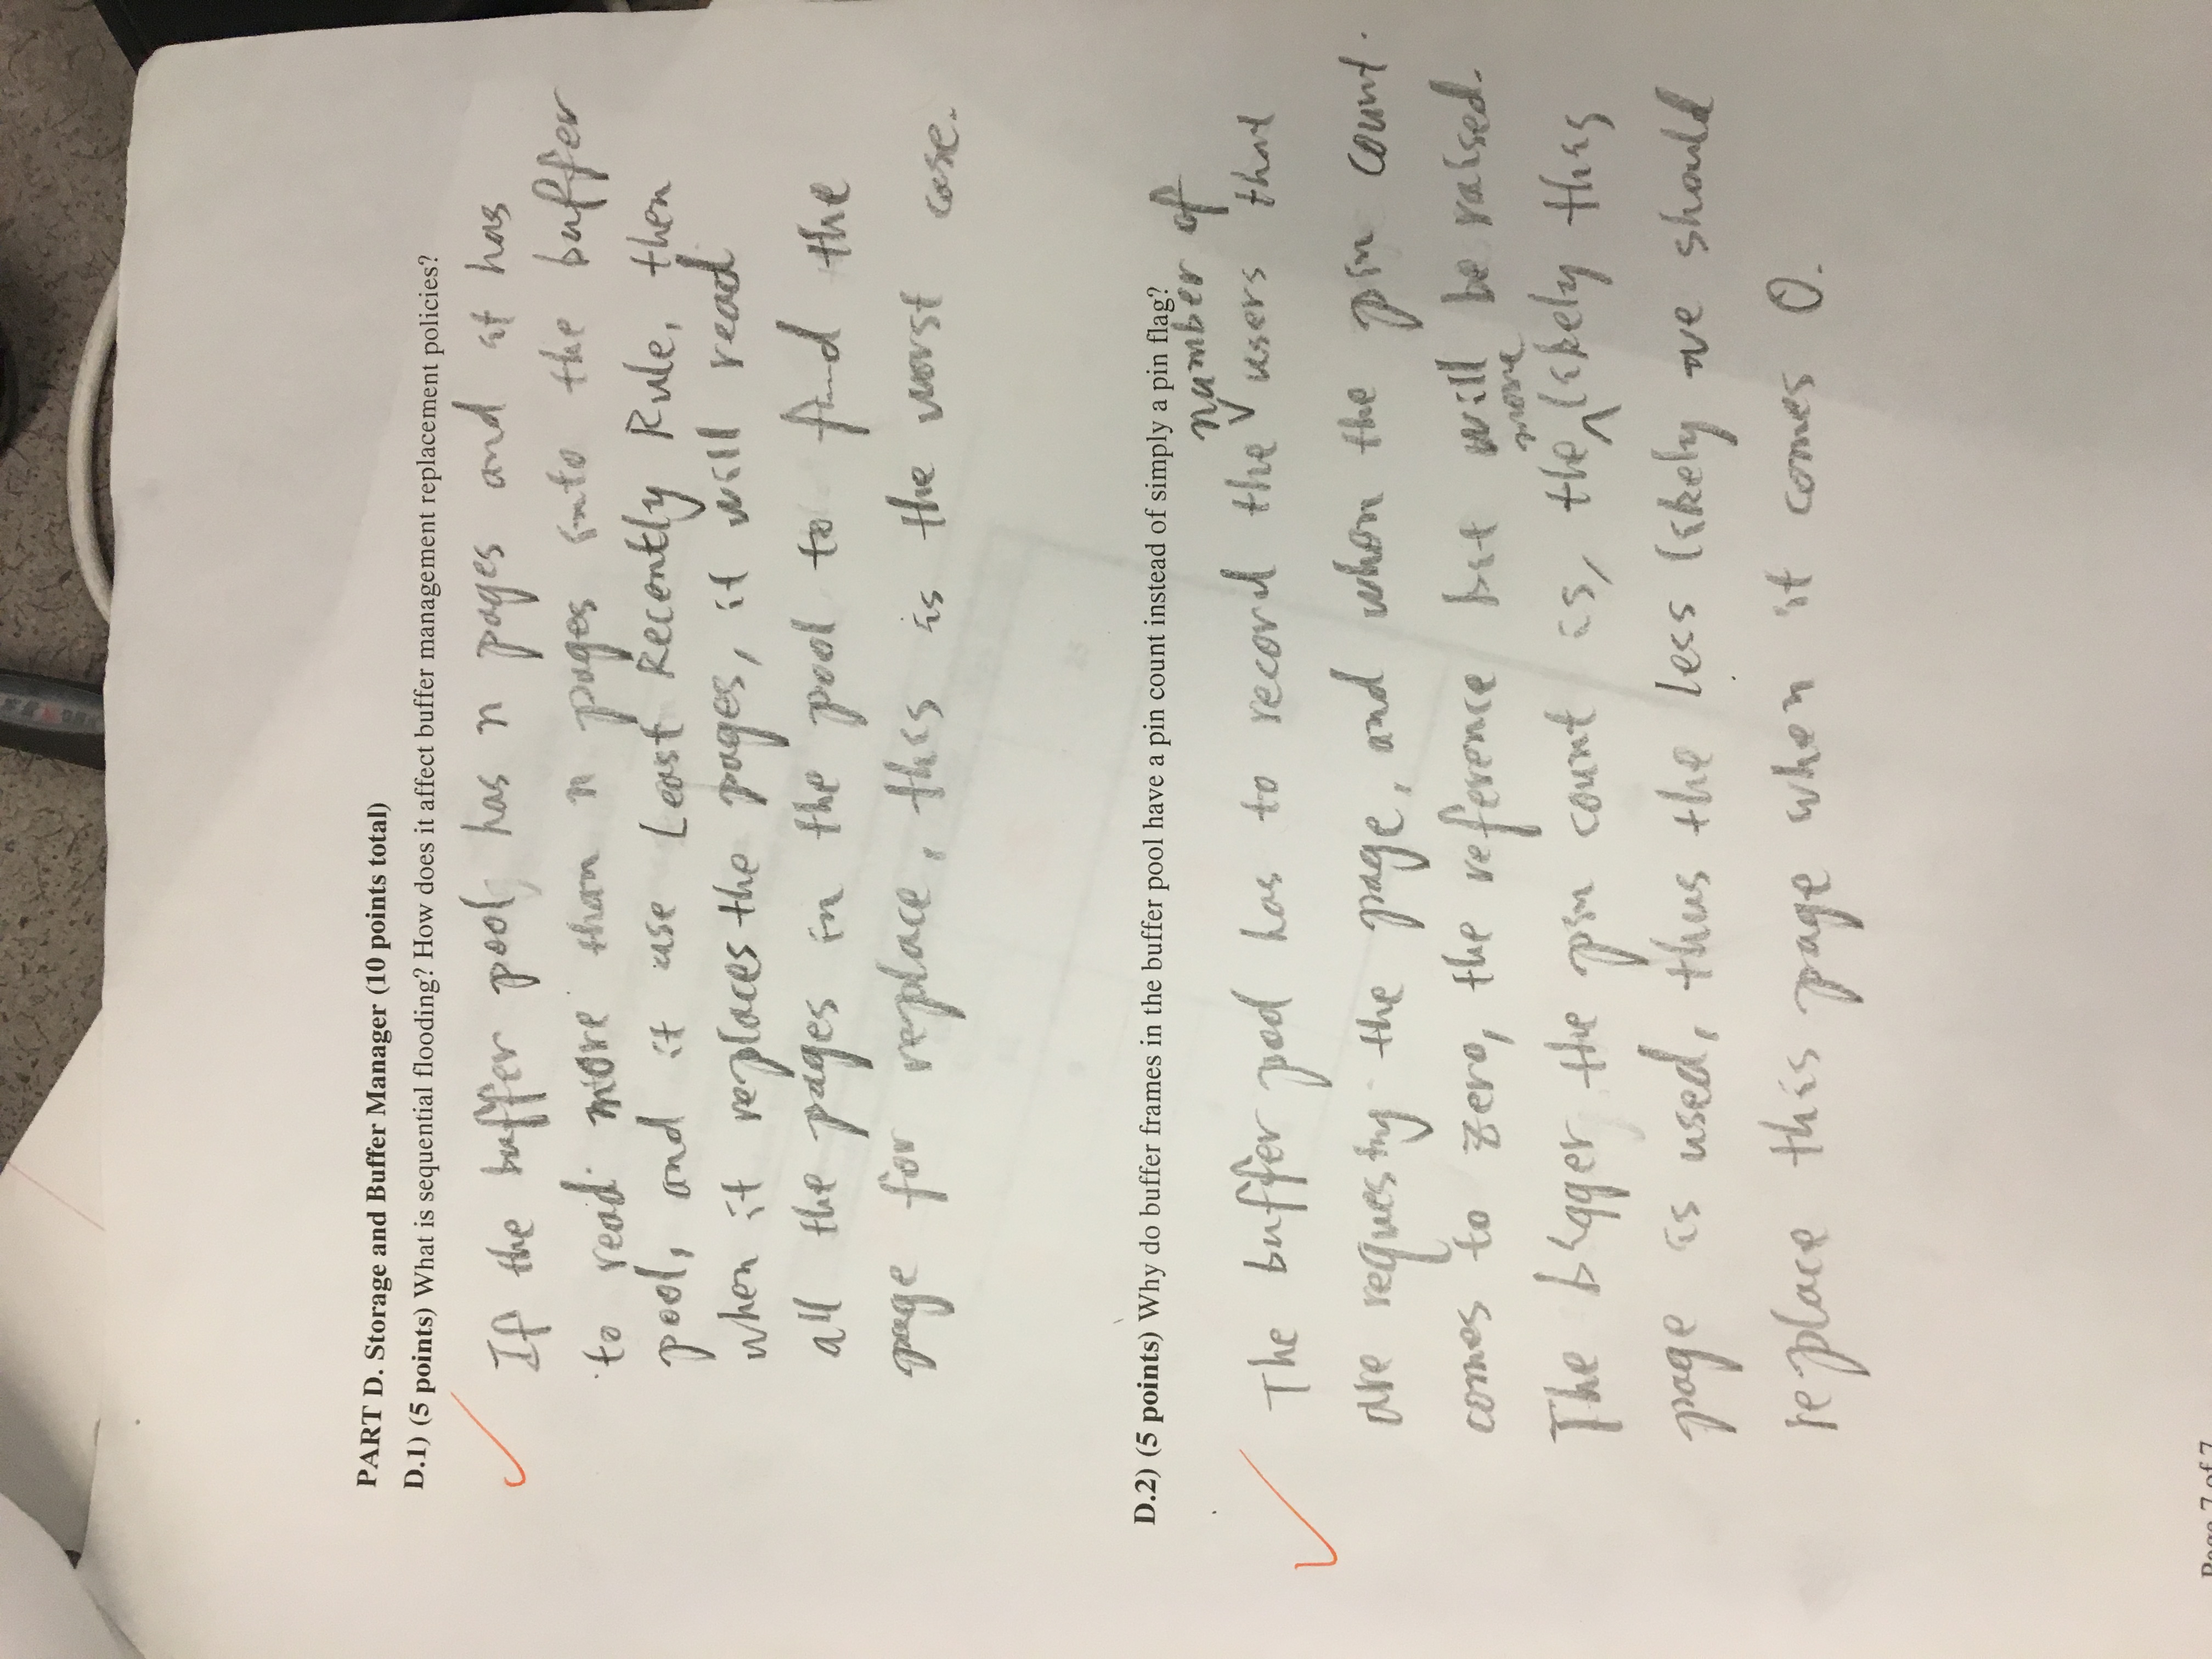 PART D. Storage and Buffer Manager (10 points total)
D.1) (5 points) What is sequential flooding? How does it affect buffer management replacement policies?
If the buffer pool has n pages and it has
to read more than n pages into the buffer
pool, and it use Least Recently Rule, then
when it replaces the pages, it will read
all the pages in the pool to find the
page for replace, this is the worst case.
D.2) (5 points) Why do buffer frames in the buffer pool have a pin count instead of simply a pin flag?
number of
The buffer pool has to record the users that
are requesting the page, and when the pin count
comes to zero, the reference bit will be raised.
more
The bigger the pin count is, the likely this
page is used, thus the less likely we should
replace this page when it comes 0.
Page 7 of 7